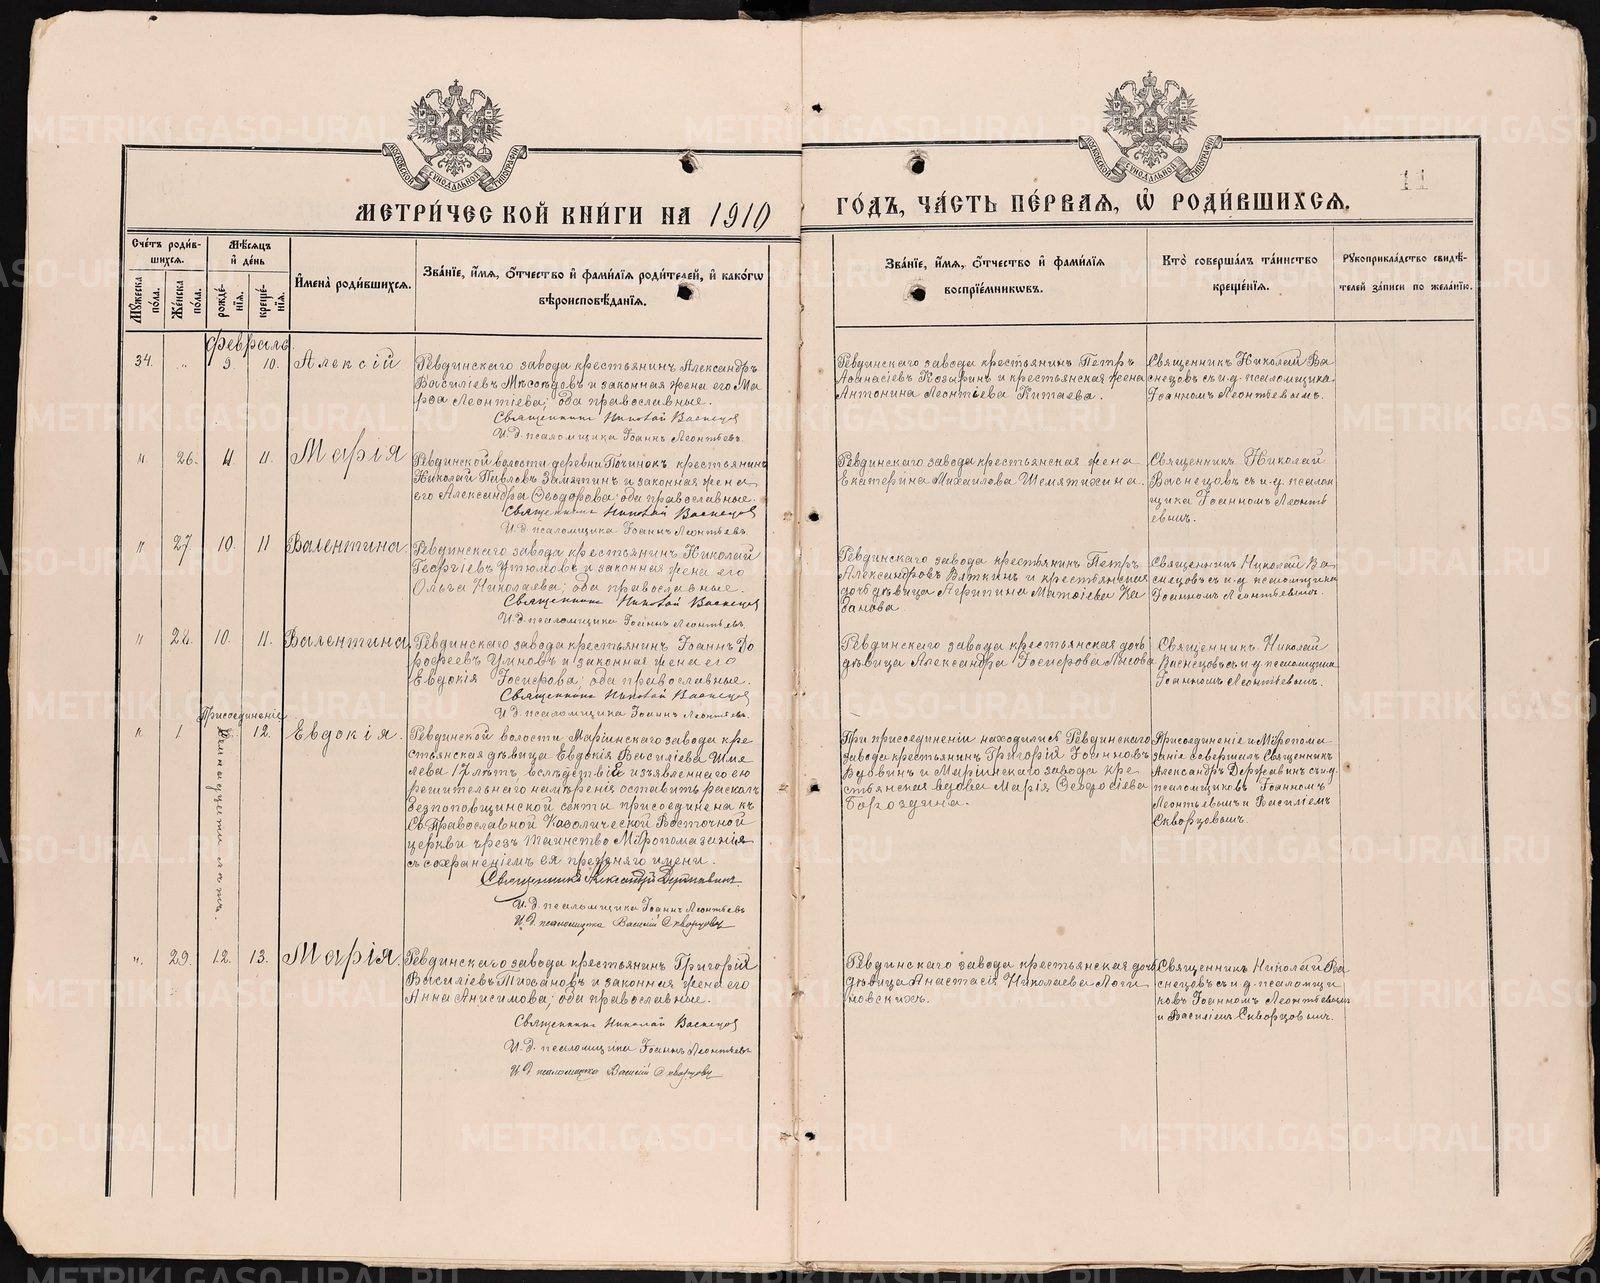 МЕТРИЧЕСКОЙ КНИГИ НА 1910
ГОДЪ, ЧАСТЬ ПЕРВАЯ, Ѡ РОДИВШИХСЯ.
11
МОСКОВСКОЙ СУНОДАЛЬНОЙ ТИПОГРАФІИ
МОСКОВСКОЙ СУНОДАЛЬНОЙ ТИПОГРАФІИ
Счетъ родив-
шихся.
Мужеска пола.
Женска пола.
Мѣсяцъ
и день
рожде-
нія.
креще-
нія.
Имена родившихся.
Званіе, имя, ѻтчество и фамилія родителей, и какогѡ
вѣроисповѣданія.
Званіе, имя, ѻтчество и фамилія
воспріемникѡвъ.
Кто совершалъ таинство
крещенія.
Рукоприкладство свидѣ-
телей записи по желанію.
Февраль.
34. „ 9 10. Алексій
Ревдинскаго завода крестьянинъ Александръ
Василіевъ Мѣсоѣдовъ и законная жена его Ма-
рѳа Леонтіева; оба православные.
Священникъ Николай Васнецов
И. д. псаломщика Іоаннъ Леонтьевъ.
Ревдинскаго завода крестьянинъ Петръ
Аѳанасіевъ Козыринъ и крестьянская жена
Антонина Леонтіева Китаева.
Священникъ Николай Ва-
снецовъ съ и. д. псаломщика
Іоанномъ Леонтьевымъ.
„ 26. 11. 11. Марія
Ревдинской волости деревни Починокъ крестьянинъ
Николай Павловъ Замятинъ и законная жена
его Александра Ѳеодорова; оба православные.
Священникъ Николай Васнецов
И. д. псаломщика Іоаннъ Леонтьевъ.
Ревдинскаго завода крестьянская жена
Екатерина Михаилова Шемятихина.
Священникъ Николай
Васнецовъ съ и. д. псалом-
щика Іоанномъ Леонть
евымъ.
„ 27. 10. 11 Валентина
Ревдинскаго завода крестьянинъ Николай
Георгіевъ Утюмовъ и законная жена его
Ольга Николаева; оба православные.
Священникъ Николай Васнецов
И. д. псаломщика Іоаннъ Леонтьевъ.
Ревдинскаго завода крестьянинъ Петръ
Александровъ Вяткинъ и крестьянская
дочь дѣвица Агрипина Матѳіева Ка-
банова
Священникъ Николай Ва-
снецовъ съ и. д. псаломщика
Іоанномъ Леонтьевымъ.
„ 28. 10. 11. Валентина
Ревдинскаго завода крестьянинъ Іоаннъ До
роѳеевъ Умновъ и законная жена его
Евдокія Іосифова; оба православные.
Священникъ Николай Васнецов
И. д. псаломщика Іоаннъ Леонтьевъ.
Ревдинскаго завода крестьянская дочь
дѣвица Александра Іосифова Лысова
Священникъ Николай
Васнецовъ съ и. д. псаломщика
Іоанномъ Леонтьевымъ.
Присоединеніе
„ 1 12. Евдокія.
Ревдинской волости Маріинскаго завода кре-
стьянская дѣвица Евдокія Василіева Шме-
лева 17 лѣтъ вслѣдствіе изъявленнаго ею
рѣшительнаго намѣренія оставить расколъ
безпоповщинской секты присоединена къ
Св. Православной Каѳолической Восточной
церкви чрезъ таинство Мѵропомазанія
съ сохраненіемъ ея прежняго имени.
Священникъ Александръ Державинъ
И. д. псаломщика Іоаннъ Леонтьевъ
И. д. псаломщика Василій Скворцовъ
При присоединеніи находились Ревдинскаго
завода крестьянинъ Григорій Іоанновъ
Вдовинъ и Маріинскаго завода кре-
стьянская вдова Марія Ѳеодосіева
Бороздина.
Присоединеніе и Мѵропома-
заніе совершалъ Священникъ
Александръ Державинъ съ и. д.
псаломщиковъ Іоанномъ
Леонтьевымъ и Василіемъ
Скворцовымъ.
„ 29. 12. 13. Марія.
Ревдинскаго завода крестьянинъ Григорій
Василіевъ Тихановъ и законная жена его
Анна Анисимова; оба православные.
Священникъ Николай Васнецов
И. д. псаломщика Іоаннъ Леонтьевъ
И. д. псаломщика Василій Скворцовъ
Ревдинскаго завода крестьянская дочь
дѣвица Анастасія Николаева Логи-
новскихъ.
Священникъ Николай Ва
снецовъ съ и. д. псаломщи
ковъ Іоанномъ Леонтьевымъ
и Василіемъ Скворцовымъ.
METRIKI.GASO-URAL.RU